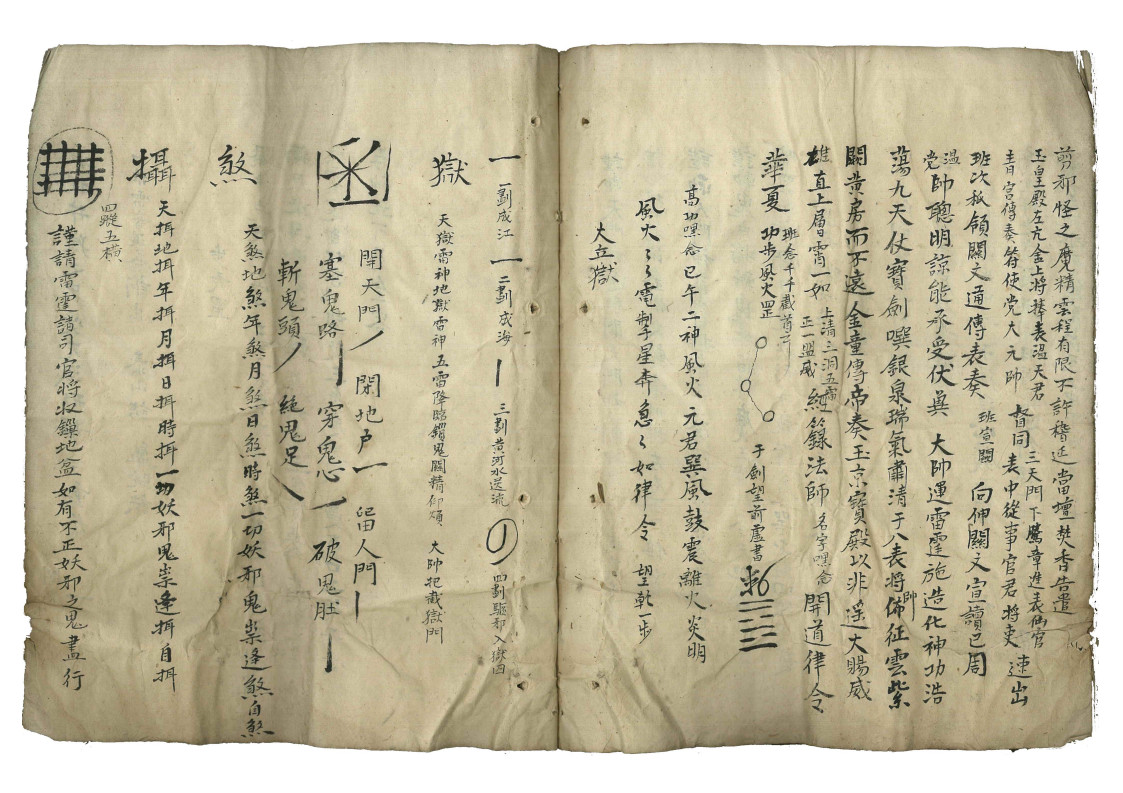 剪邪怪之魔精雲程有限不許稽延當壇一炷香告遣
玉皇殿左亢金上將捧表溫天君 三天門下騰章進表仙官
青宮傳奏符使党大元帥 督同 表中從事官君將吏 速出
班次秖領關文通傳表奏 班宣關 向伸關文宣讀已周
溫党帥聰明諒能承受伏兾 大帥運雷霆施造化神功浩
蕩九天仗寶劍噀銀泉瑞氣肅清于八表將帥佈征雲紫
關黃房而不遠金童傳帝奏玉京寶殿以非遥大賜威
雄直上層霄一如 上清三洞五雷正一盟威 經籙法師 名字嘿念 開道律令
華夏 班念千千截首 功步風火四 于劍望前虛書
高功嘿念巳午二神風火元君巽風鼓震離火炎明
風火〻〻電掣星奔急〻如律令 望乾一步
大立獄
一 一劃成江 一 二劃成海 丨 三劃黃河水逆流 四劃驅邪入獄囚
獄 天獄雷神地獄雷神五雷降臨 鬼關精仰煩 大帥把截獄門
開天門 閉地戶 留人門
塞鬼路 穿鬼心 破鬼肚
斬鬼頭 絕鬼足
煞 天煞地煞年煞月煞日煞時煞一切妖邪鬼祟逢煞自煞
攝 天揖地揖年揖月揖日揖時揖一切妖邪鬼祟逢揖自揖
四蹤五橫
謹請雷霆諸司官將收鏁地盆如有不正妖邪之鬼盡行